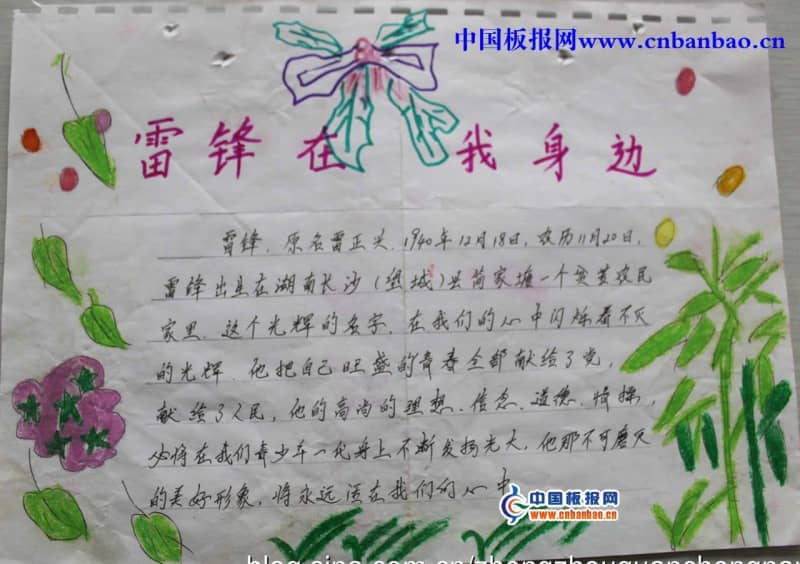 中国板报网www.cnbanbao.cn
雷锋在我身边
雷锋，原名雷正兴，1940年12月18日，农历11月20日，
雷锋出生在湖南长沙（望城）县简家塘一个贫苦农民
家里。这个光辉的名字，在我们的心中闪烁着不灭
的光辉，他把自己旺盛的青春全部献给了党，
献给了人民，他的高尚的理想、信念、道德、情操，
必将在我们青少年一代身上不断发扬光大，他那不可磨灭
的美好形象，将永远活在我们的心中
中国板报网
www.cnbanbao.cn
blog.sina.com.cn/